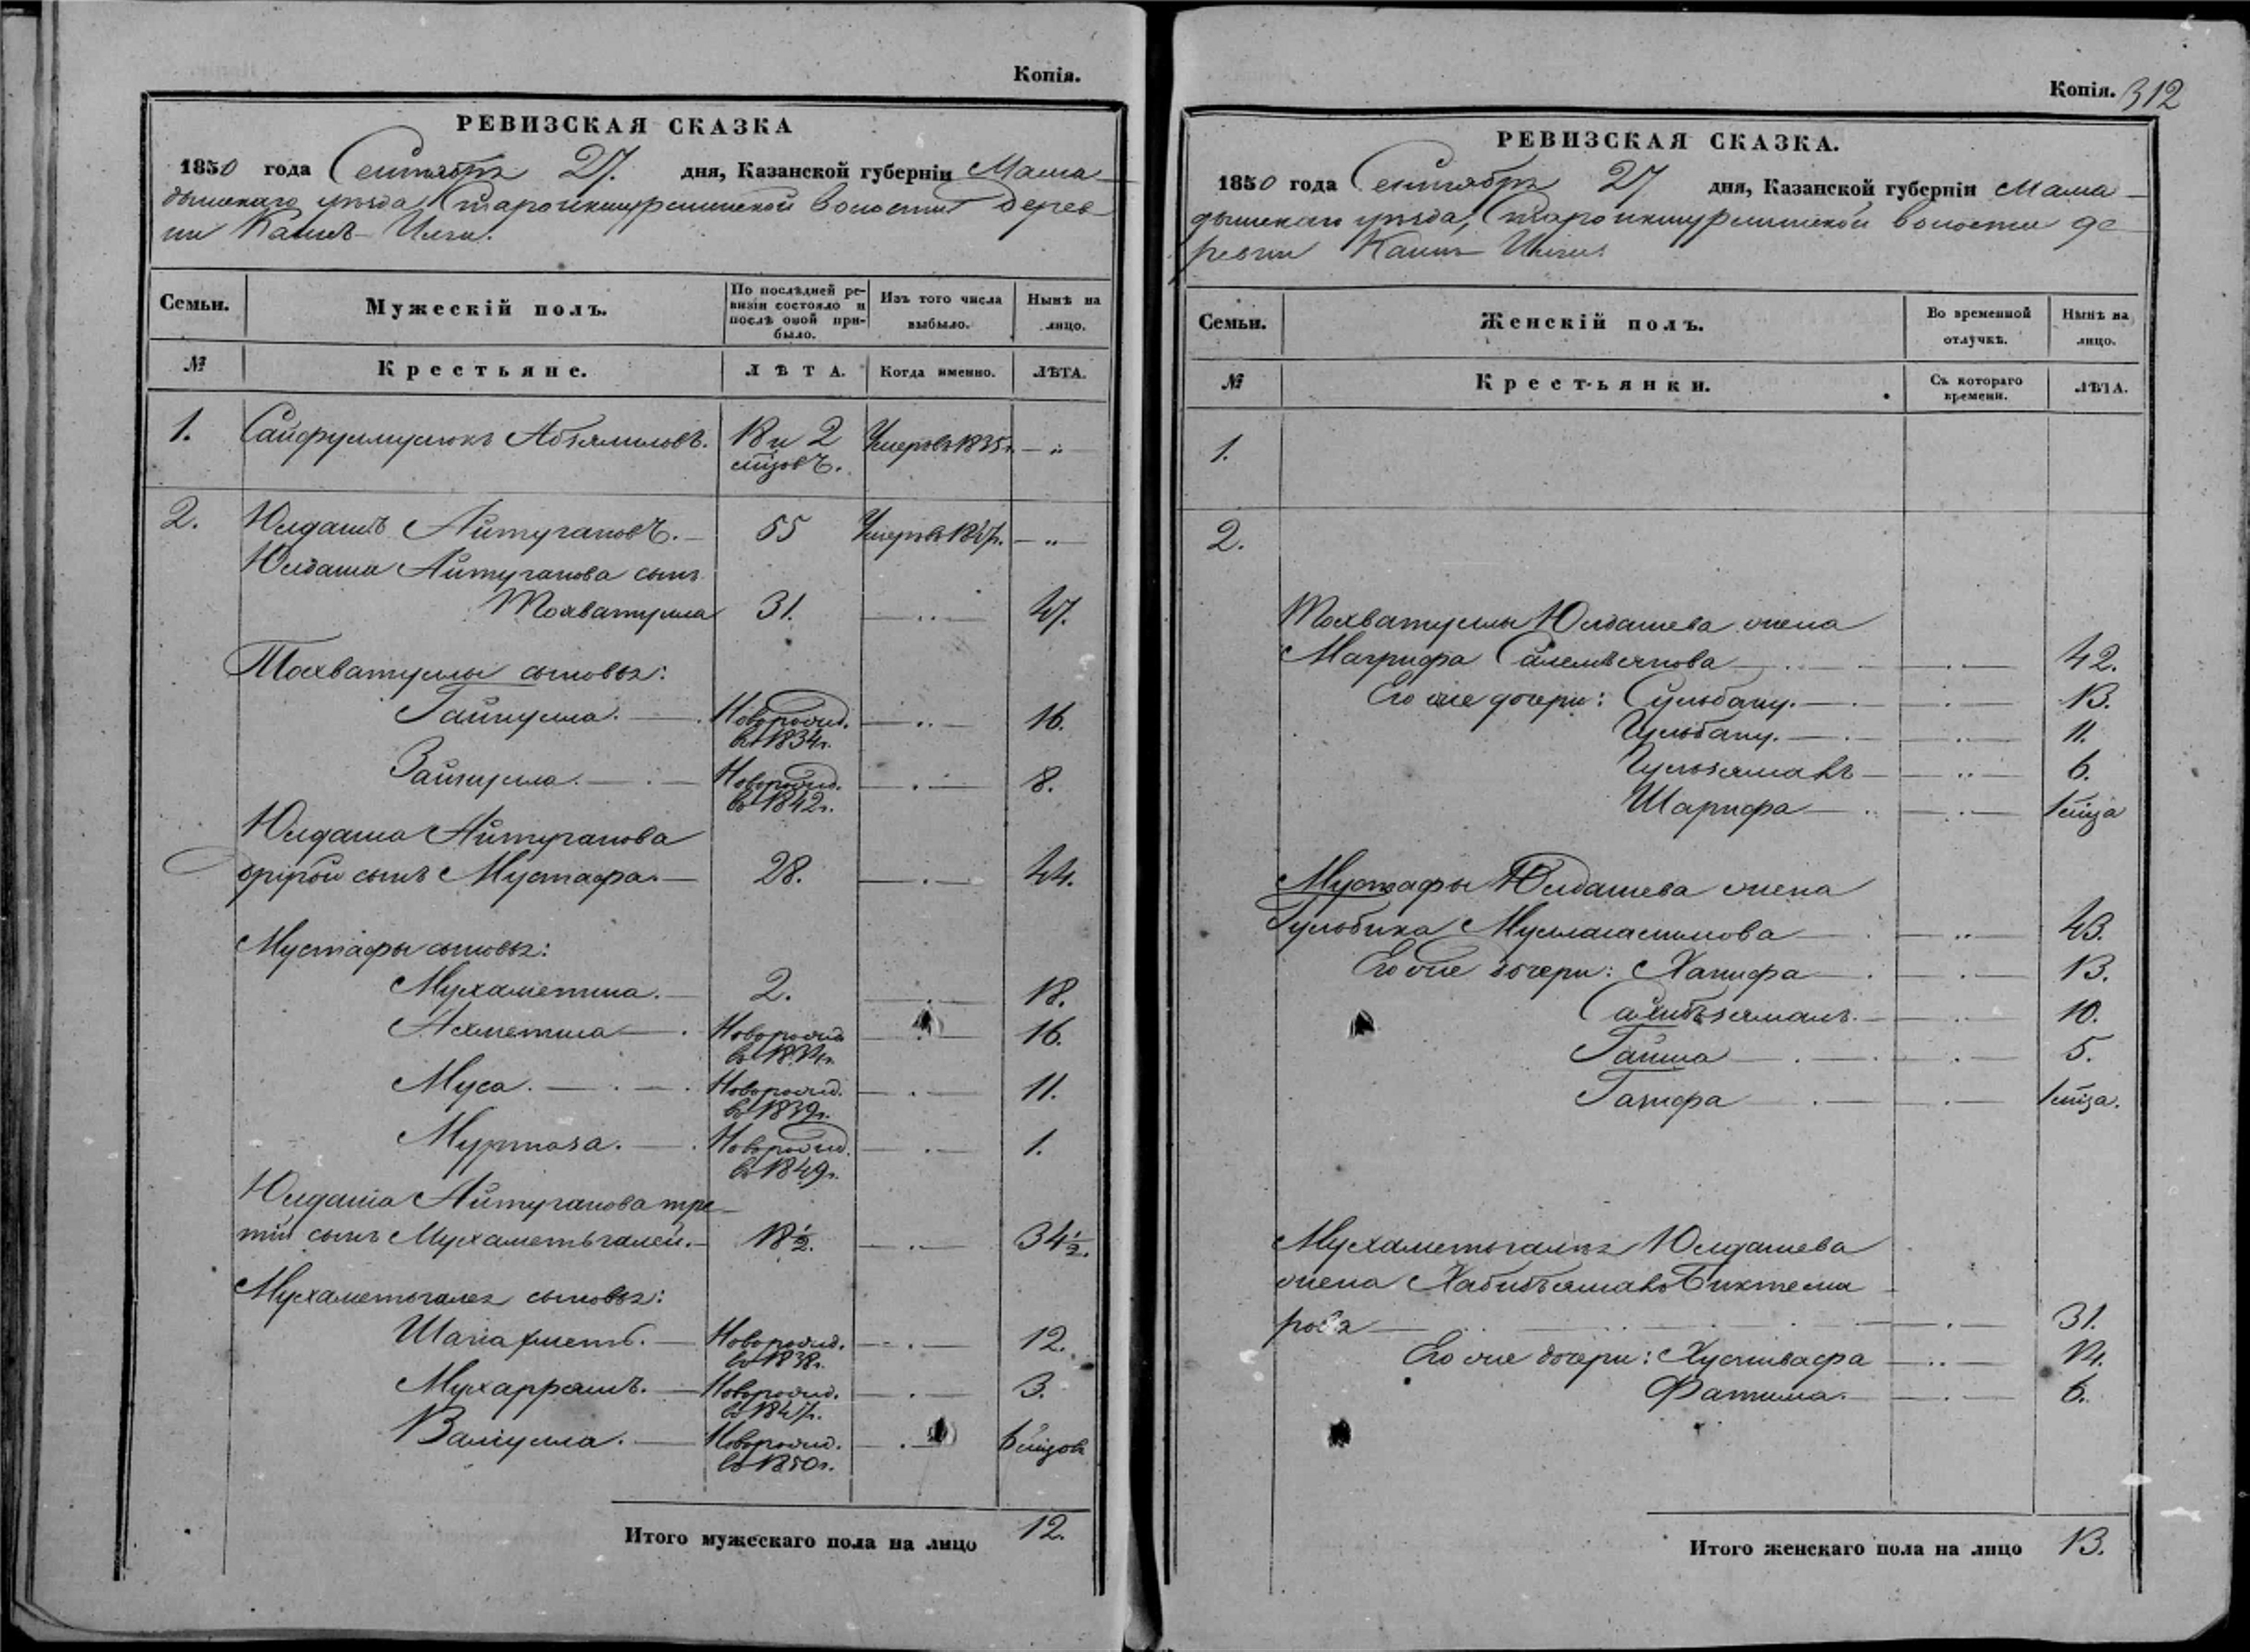 Копія.
РЕВИЗСКАЯ СКАЗКА
1850 года Сентября 27. дня, Казанской губерніи Мама-
дышскаго уѣзда, Староикшурминской волости дерев-
ни Кашъ-Илги.
Семьи. Мужескій полъ. По послѣдней ре-визіи состояло и послѣ оной при-было. Изъ того числа выбыло. Нынѣ на лицо.
№ Крестьяне. ЛѢТА. Когда именно. ЛѢТА.
1. Сайфулмулюкъ Абзялиловъ. 18 и 2 Умеръ въ 1835 г. — „ —
мѣсѣцовъ.
2. Юлдашъ Айтугановъ. — 55 Умеръ въ 1847 г. — „ —
Юлдаша Айтуганова сынъ
Тохватулла 31. — „ — 47.
Тохватуллы сыновья:
Гайнулла. — Новорожд. въ 1834 г. — „ — 16.
Зайнулла. — Новорожд. въ 1842 г. — „ — 8.
Юлдаша Айтуганова
другой сынъ Мустафа. — 28. — „ — 44.
Мустафы сыновья:
Мухаметша. — 2. — „ — 18.
Ахметша — Новорожд. въ 1834 г. — „ — 16.
Муса. — Новорожд. въ 1839 г. — „ — 11.
Муртаза. — Новорожд. въ 1849 г. — „ — 1.
Юлдаша Айтуганова тре-
тій сынъ Мухаметьгалей. — 18½. — „ — 34½.
Мухаметьгалея сыновья:
Шагіахметъ. — Новорожд. въ 1838 г. — „ — 12.
Мухаррямъ. — Новорожд. въ 1847 г. — „ — 3.
Валіулла. — Новорожд. въ 1850 г. — „ —
Итого мужескаго пола на лицо 12.
Копія. 312
РЕВИЗСКАЯ СКАЗКА.
1850 года Сентября 27 дня, Казанской губерніи Мама-
дышскаго уѣзда, Староикшурминской волости де-
ревни Кашъ Илги.
Семьи. Женскій полъ. Во временной отлучкѣ. Нынѣ на лицо.
№ Крестьянки. Съ котораго времени. ЛѢТА.
1.
2.
Тохватуллы Юлдашева жена
Магрифа — „ — 42.
Его же дочери: Сульбану. — „ — 13.
Гульбану. — „ — 11.
Гульзямалъ — „ — 6.
Шарифа — „ —
Мустафы Юлдашева жена
Гульбика Муллагасимова — „ — 43.
Его же дочери: Ханифа — „ — 13.
Сахибъзямалъ. — „ — 10.
Гайша — „ — 5.
Ганифа — „ —
Мухаметьгалея Юлдашева
жена Хабибъямалъ Биктеми-
рова — „ — 31.
Его же дочери: — „ — 14.
Фатима. — „ — 6.
Итого женскаго пола на лицо 13.